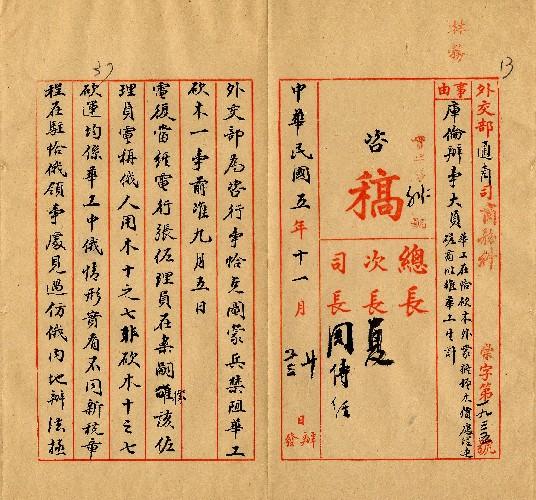 13
外交部通商司商務科
字第一九三五號
事由
庫倫辦事大員
華工在恰砍木外蒙
磋商以維華工生計
咨
稿
總長
次長
司長
夏
周傳經
中華民國五年十一月廿日辦
廿三發
37
外交部為咨行事恰克圖蒙兵禁阻華工
砍木一事前准九月五日
電後當經電行張佐理員在案嗣據該佐
理員電稱俄人用木十之七非砍木十之七
砍運均係華工中俄情形實有不同新稅章
程在駐恰俄領事處見過仿俄內地辦法極